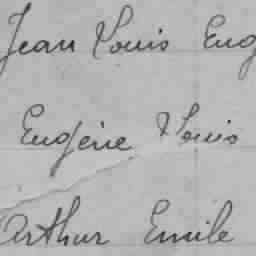 Jean Louis Eug
Eugène Louis
Arthur Emile